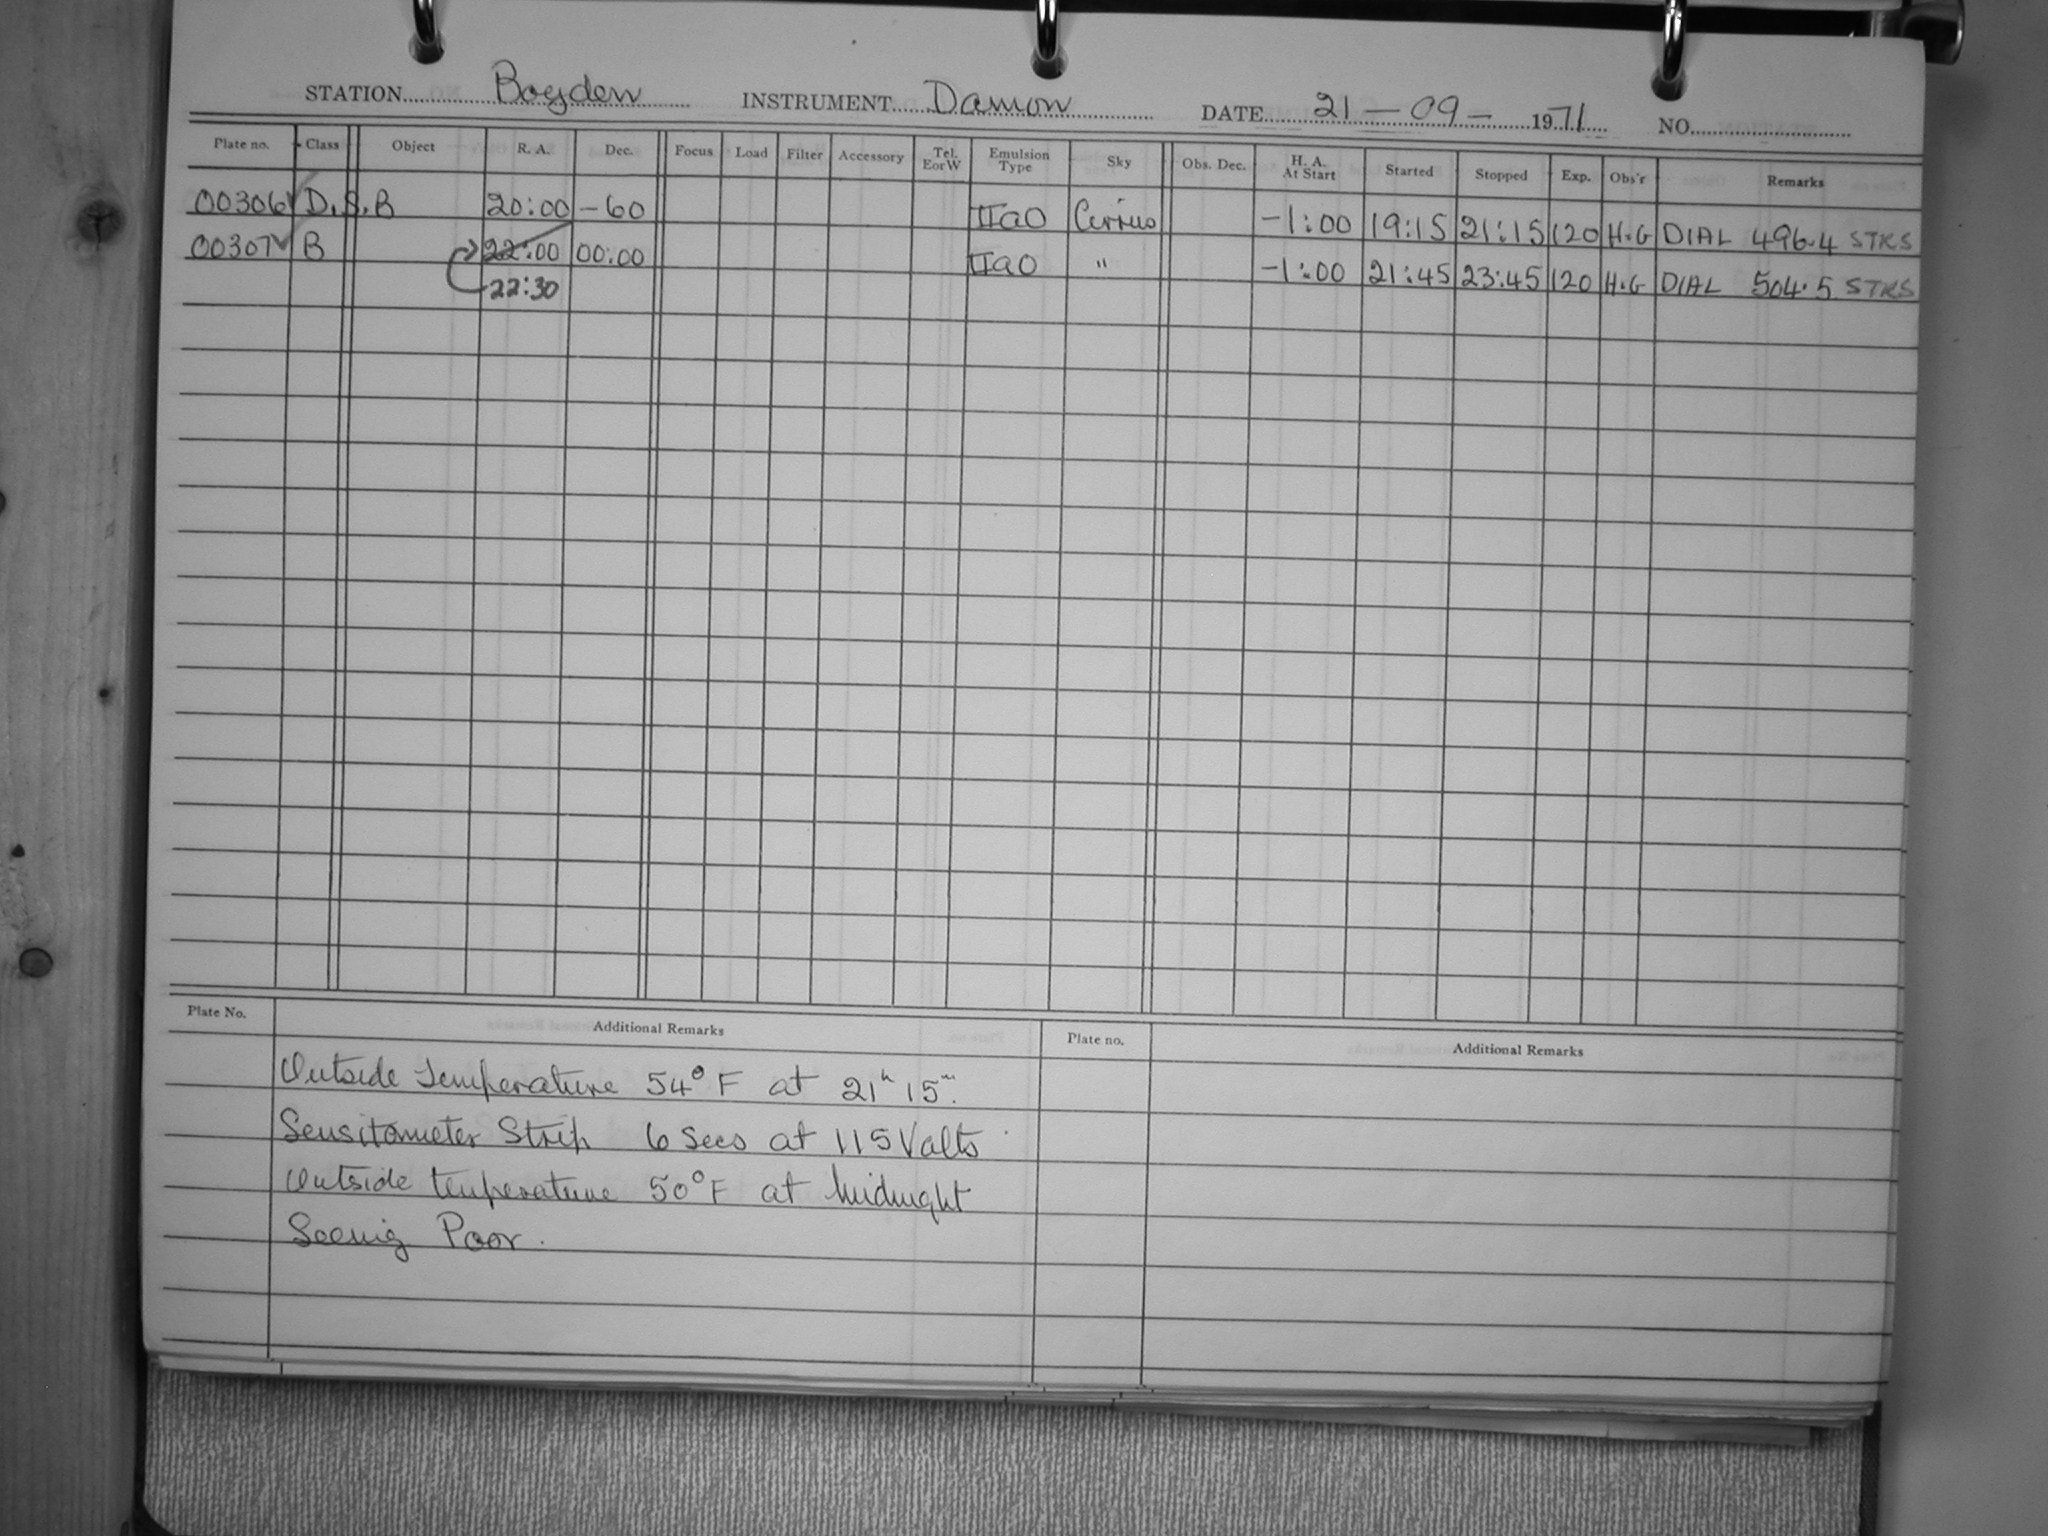 STATION Boyden INSTRUMENT Damon DATE 21 - 09 - 1971 NO.
Plate no. Class Object R. A. Dec. Focus Load Filter Accessory Tel. E or W Emulsion Type Sky Obs. Dec. H. A. At Start Started Stopped Exp. Obs'r Remarks
00306 D.S.B 20:00 -60 IIaO Cirrus -1:00 19:15 21:15 120 H.G DIAL 496.4 STKS
00307 B 22:00 00:00 IIaO " -1:00 21:45 23:45 120 H.G DIAL 504.5 STKS
22:30
Plate No. Additional Remarks Plate no. Additional Remarks
Outside Temperature 54° F at 21h 15m.
Sensitometer Strip 6 Secs at 115 Volts
Outside temperature 50°F at Midnight
Seeing Poor.